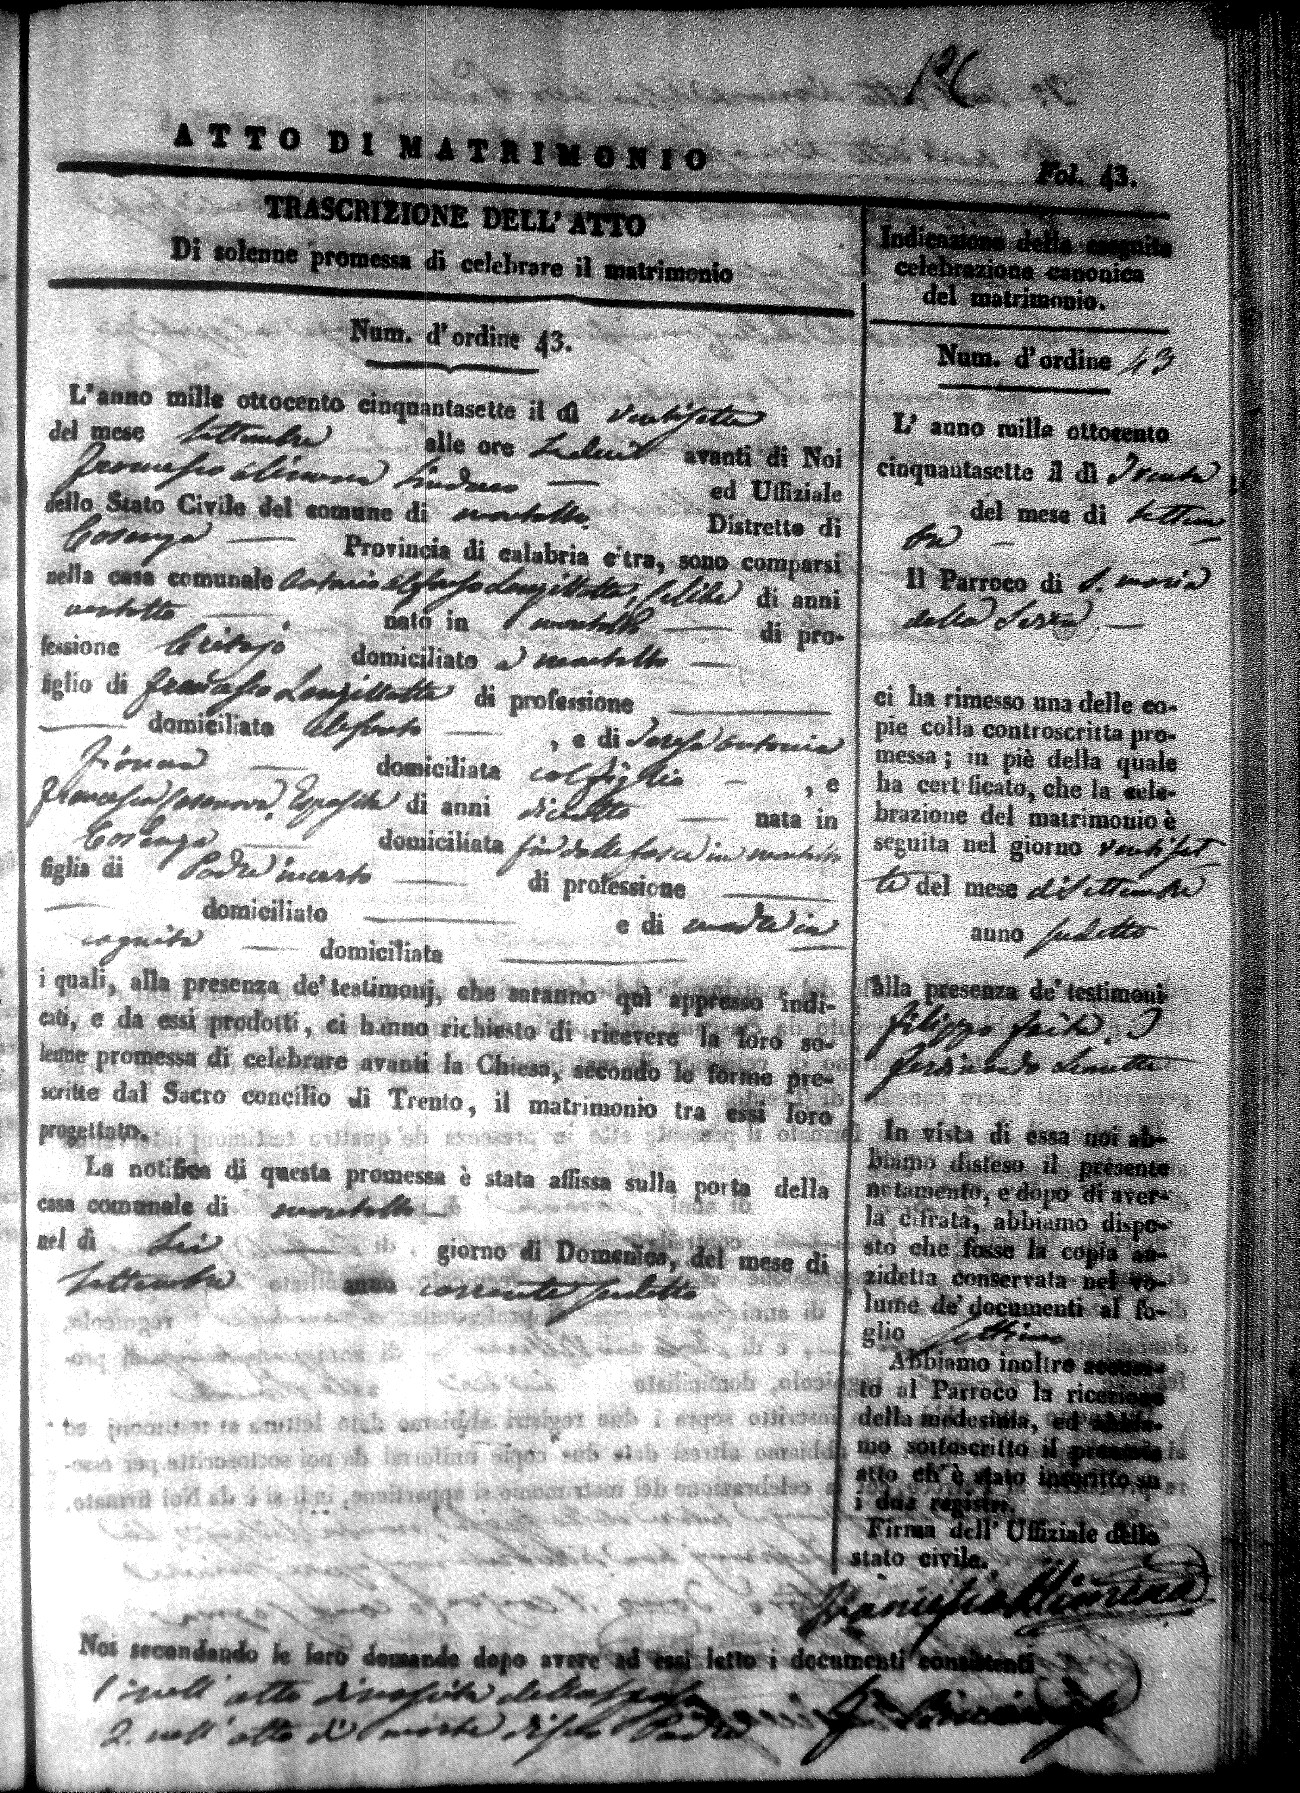 ATTO DI MATRIMONIO
Fol. 43.
TRASCRIZIONE DELL' ATTO
Di solenne promessa di celebrare il matrimonio
Num. d'ordine 43.
L'anno mille ottocento cinquantasette il dì ventisette
del mese Settembre alle ore avanti di Noi
Francesco Alimena Sindaco ed Uffiziale
dello Stato Civile del comune di Montalto Distretto di
Cosenza Provincia di calabria citra, sono comparsi
nella casa comunale Antonio Longillotta, celibe di anni
ventotto nato in Montalto di pro-
fessione domiciliato a Montalto
figlio di Francesco Longillotta di professione
domiciliato , e di Antonia
domiciliata col figlio , e
Francesca Casanova Esposita di anni diciotto nata in
Cosenza domiciliata in Montalto
figlia di Padre incerto di professione
domiciliato e di madre in
cognita domiciliata
i quali, alla presenza de' testimonj, che saranno quì appresso indi-
cati, e da essi prodotti, ci hanno richiesto di ricevere la loro so-
lenne promessa di celebrare avanti la Chiesa, secondo le forme pre-
scritte dal Sacro concilio di Trento, il matrimonio tra essi loro
progettato.
La notifica di questa promessa è stata affissa sulla porta della
casa comunale di Montalto
nel dì sei giorno di Domenica, del mese di
Settembre anno corrente sudetto
Noi secondando le loro domande dopo avere ad essi letto i documenti consistenti
1. nell' atto di nascita della sposa
2. nell' atto di morte di suo Padre
Indicazione della seguita
celebrazione canonica
del matrimonio.
Num. d'ordine 43
L' anno mille ottocento
cinquantasette il dì Trenta
del mese di Settem
bre
Il Parroco di S. Maria
della Serra
ci ha rimesso una delle co-
pie colla controscritta pro-
messa; in piè della quale
ha certificato, che la cele-
brazione del matrimonio è
seguita nel giorno ventiset
te del mese di Settembre
anno sudetto
alla presenza de' testimoni
Filippo
Ferdinando
In vista di essa noi ab-
biamo disteso il presente
notamento, e dopo di aver-
la cifrata, abbiamo dispo-
sto che fosse la copia an-
zidetta conservata nel vo-
lume de' documenti al fo-
glio settimo
Abbiamo inoltre accusa-
to al Parroco la ricezione
della medesima, ed abbia-
mo sottoscritto il presente
atto ch' è stato inscritto su
i due registri.
Firma dell' Uffiziale dello
stato civile.
Francesco Alimena